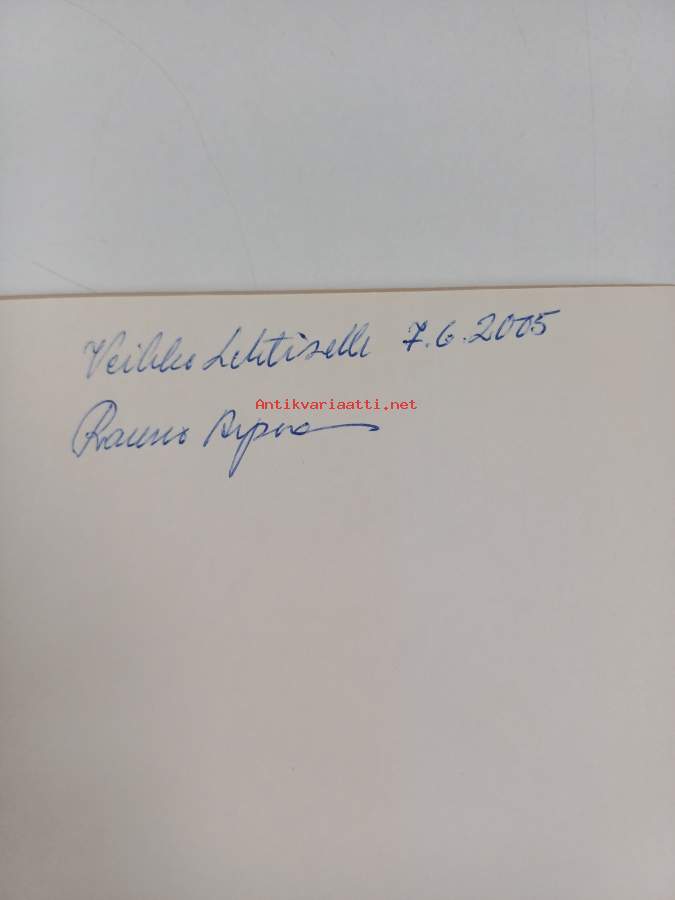 Veikko Lehtiselle 7.6.2005
Antikvariaatti.net
Rauno